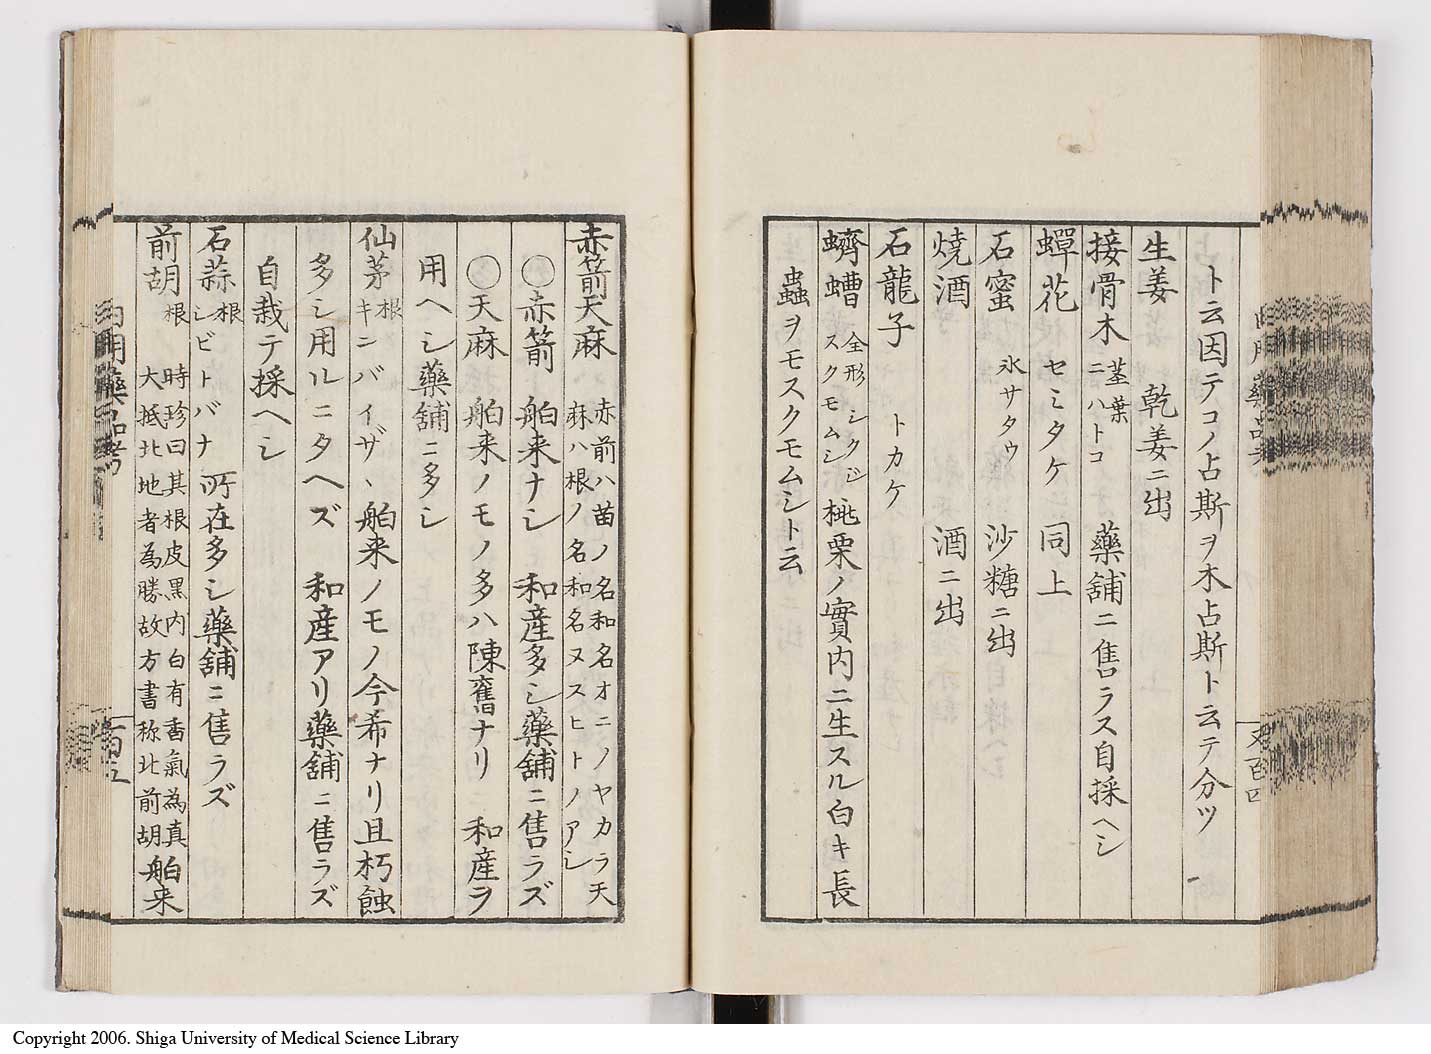 ト云因テコノ占斯ヲ木占斯ト云テ分ツ
生姜 乾姜ニ出
接骨木 茎葉 ニハトコ 藥舖ニ售ラス自採ヘシ
蟬花 セミタケ 同上
石蜜 氷サタウ 沙糖ニ出
燒酒 酒ニ出
石龍子 トカケ
蠐螬 全形 シクジ スクモムシ 桃栗ノ實内ニ生スル白キ長
蟲ヲモスクモムシト云
赤箭天麻 赤箭ハ苗ノ名和名オニノヤカラ天
麻ハ根ノ名和名ヌスヒトノアシ
〇赤箭 舶来ナシ 和産多シ藥舖ニ售ラズ
〇天麻 舶来ノモノ多ハ陳舊ナリ 和産ヲ
用ヘシ藥舖ニ多シ
仙茅 根 キンバイザヽ 舶来ノモノ今希ナリ且朽蝕
多シ用ルニタヘズ 和産アリ藥舖ニ售ラズ
自栽テ採ヘシ
石蒜 根 シビトバナ 所在多シ藥舖ニ售ラズ
前胡 根 時珍曰其根皮黒内白有香氣為真
大抵北地者為勝故方書称北前胡 舶来
百五
Copyright 2006. Shiga University of Medical Science Library